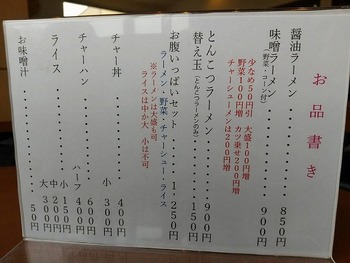 お品書き
醤油ラーメン・・・・・・・・・・850円
味噌ラーメン・・・・・・・・・・900円
(野菜・コーン付)
少なめ50円引 大盛100円増
野菜100円増 カツ乗せ200円増
チャーシューメンは200円増
とんこつラーメン・・・・・・・・900円
替え玉(とんこつラーメンのみ)・・・150円
お腹いっぱいセット・・・・・1,250円
ラーメン・野菜・チャーシュー・ライス
※ラーメンは大盛も可
ライスは中か大 小は不可
チャー丼・・・・・・・・・・・400円
小 300円
チャーハン・・・・・・・・・・600円
ハーフ 400円
ライス・・・・・・・・・・・小150円
中200円
大300円
お味噌汁・・・・・・・・・・・50円